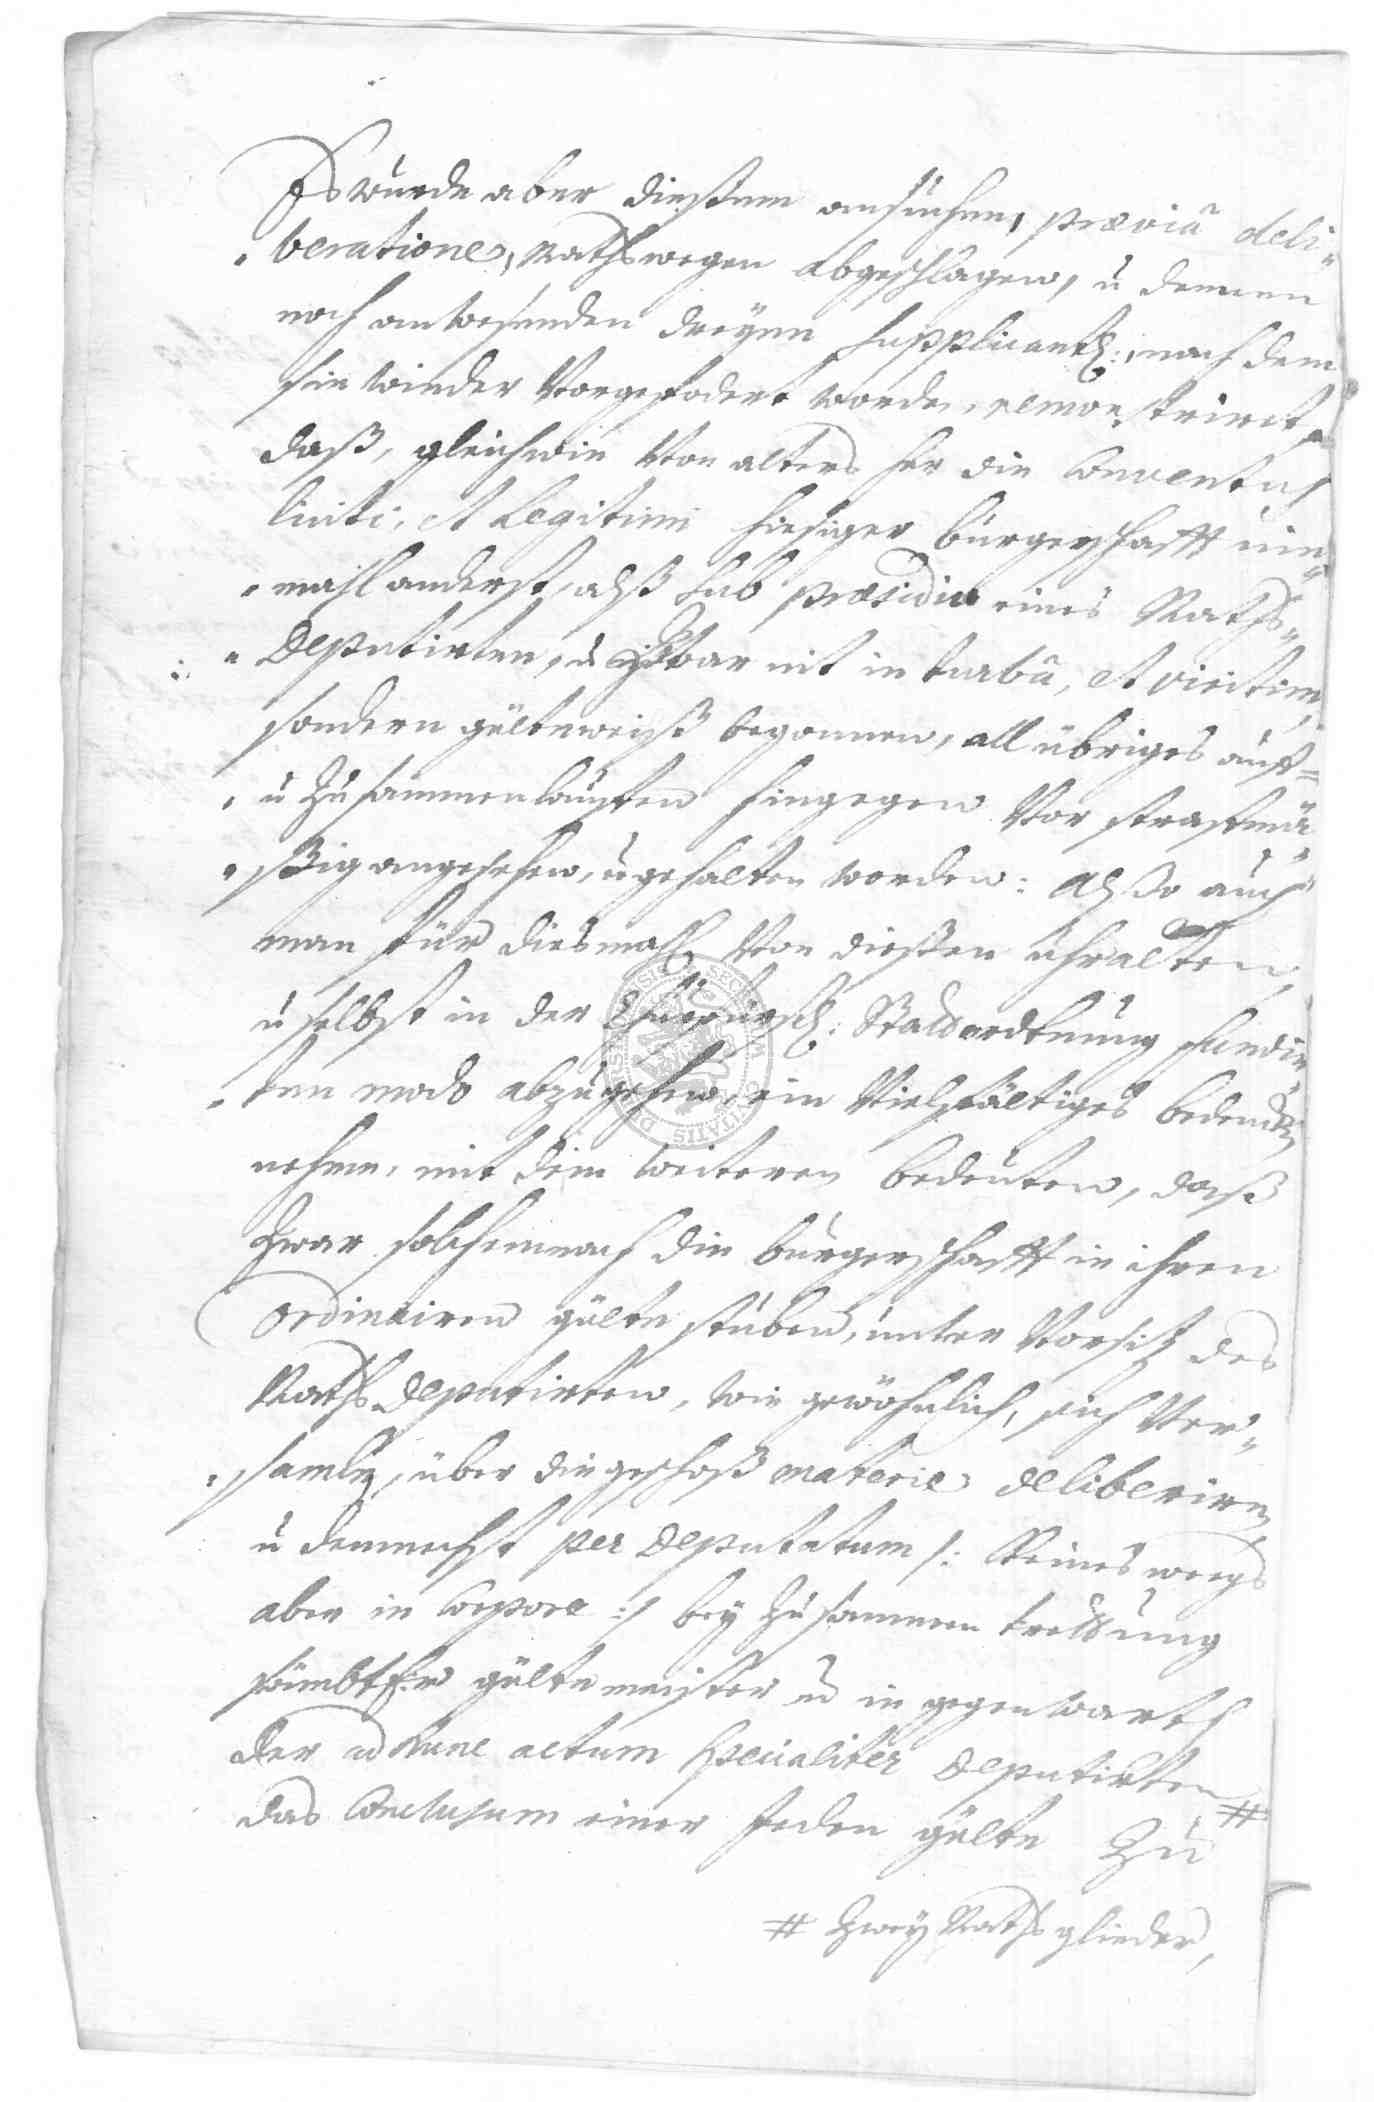 Es wurde aber dießem ansuchen, præviâ deli-
beratione, Raths wegen abgeschlagen, u dennen
noch anwesenden dreyen supplicanten, nach dem
sie wieder Vorgefodert worden, remonstrirt,
daß, gleichwie Von alters her die Conventus
liciti, et Legitimi hiesiger bürgerschafft nie-
mahl anderst, alß sub præsidio eines Raths-
Deputirten, u zwar nit in turbâ, et viritim,
sondern zülteweiß begonnen, all übriges auff-
u Zusammenlauffen hingegen Vor straffmä-
ßig angesehen, u gehalten worden: alßo auch
man für diesmahl Von dießen uhralten
u selbst in der Churfürstl: Stattordtnung fundir-
ten modo abzugehen, ein Vielfältiges bedencken
nehme, mit dem weiteren bedeuten, daß
zwar solchemnach die bürgerschafft in ihren
ordinairen zülte stuben, unter Vorsitz des
Raths Deputirten, wie gewöhnlich, sich Ver-
samlen, über die geschoß materie deliberiren
u demnechst per Deputatum /: Keines weegs
aber in Corpore :/ bey Zusammen trettung
sämbtl zülte meister u in gegenwarth
der ad hunc actum specialiter Deputirten #
das Conclusum einer Jeden zülte Zu
# Zwey Raths glieder,
SIGILLUM SECRETUM CIVITATIS